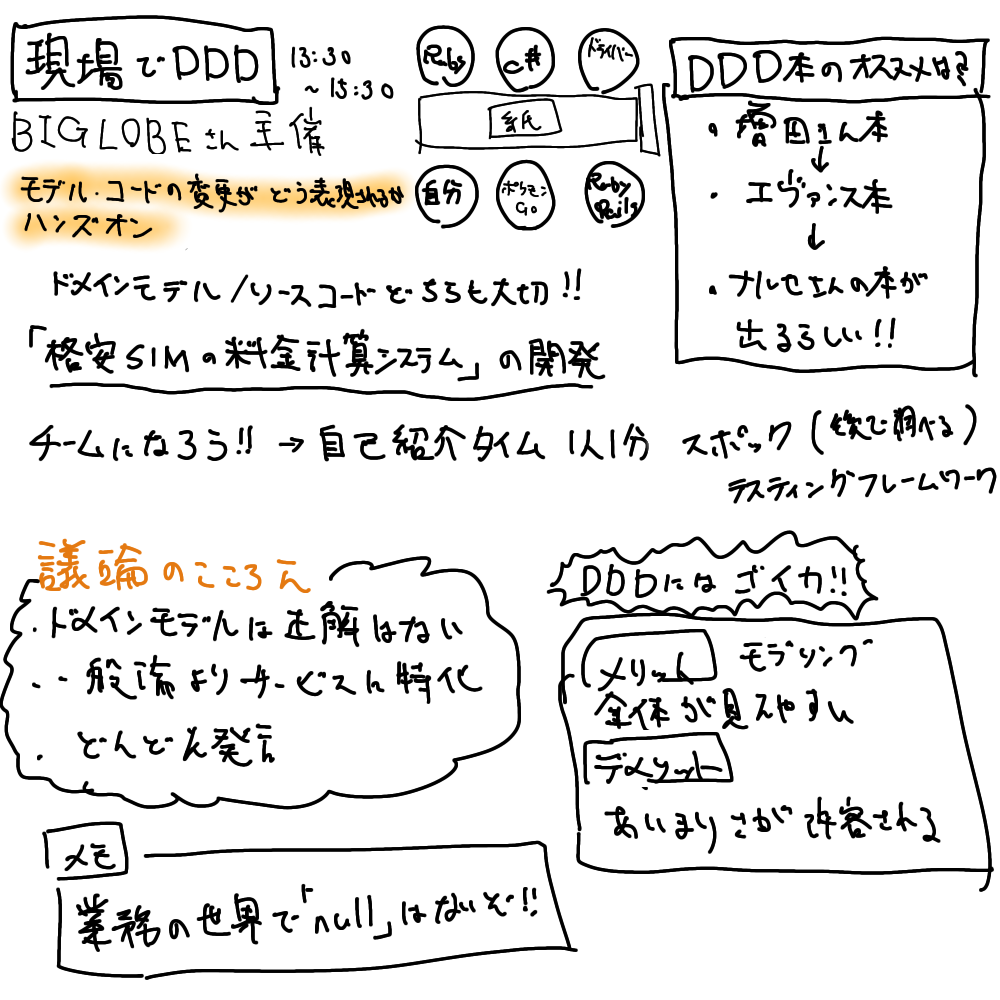 現場でDDD
13:30
～15:30
BIGLOBEさん主催
モデル・コードの変更がどう表現されるか
ハンズオン
Ruby
C#
ドライバー
紙
自分
ポケモン
GO
Ruby
Rails
DDD本のオススメは?
・増田さん本
↓
・エヴァンス本
↓
・ナルセさんの本が
出るらしい!!
ドメインモデル/ソースコードどちらも大切!!
「格安SIMの料金計算システム」の開発
チームになろう!! → 自己紹介タイム 1人1分
スポック(後で調べる)
テスティングフレームワーク
議論のこころえ
・ドメインモデルは正解はない
・一般論よりサービスに特化
・どんどん発言
DDDにはゴイカ!!
メリット
モデリング
全体が見えやすい
デメリット
あいまいさが許容される
メモ
業務の世界で「null」はないぞ!!